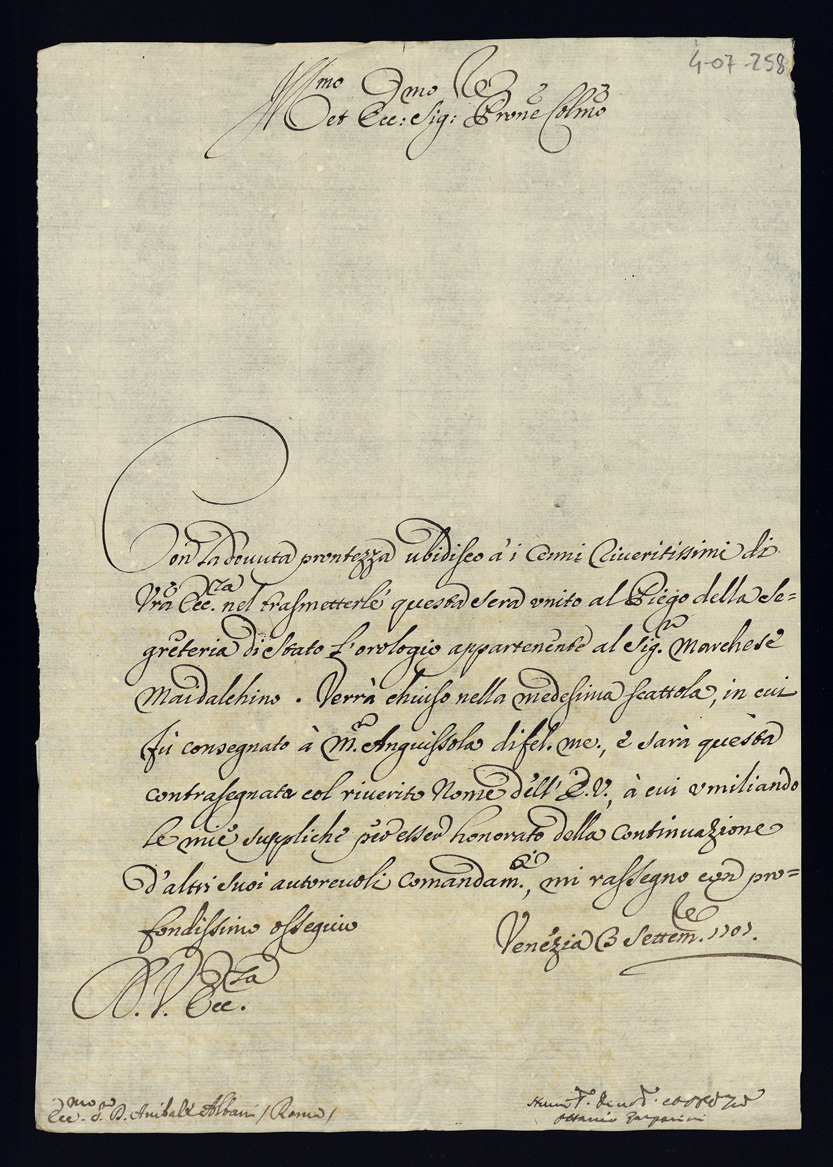 4-07-258
Ill.mo
et Ecc: Sig: Prone Colmo
Con la douuta prontezza ubidisco à i Cenni riueritissimi di
Vra Ecc.za nel trasmetterle questa sera vnito al Piego della Se=
greteria di Stato l'orologio appartenente al Sig.r Marchese
Maidalchino. Verrà chiuso nella medesima scattola, in cui
fù consegnato à M.r Anguissola di fel. me., e sarà questa
contrasegnata col riuerito Nome dell' E.V., à cui vmiliando
le mie suppliche per esser honorato della continuazione
d'altri suoi autoreuoli Comandam.ti, mi rassegno con pro=
fondissimo ossequio
Venezia 3 Settem.re 1707.
D. V. Ecc.za
Ecc.mo S.r D. Anibale Albani / Roma /
Ottavio Gasparini